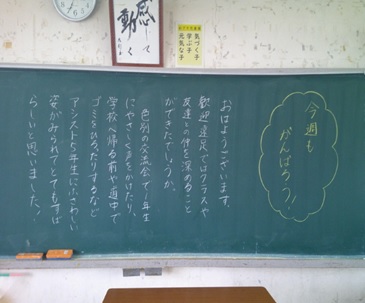 感じて
動く
気づく子
学ぶ子
元気な子
今週も
がんばろう!
おはようございます。
歓迎遠足ではクラスや
友達との仲を深めること
ができたでしょうか。
色別の交流会で1年生
にやさしく声をかけたり、
学校へ帰る前や道中で
ゴミをひろったりするなど
アシスト5年生にふさわしい
姿がみられてとてもすば
らしいと思いました!